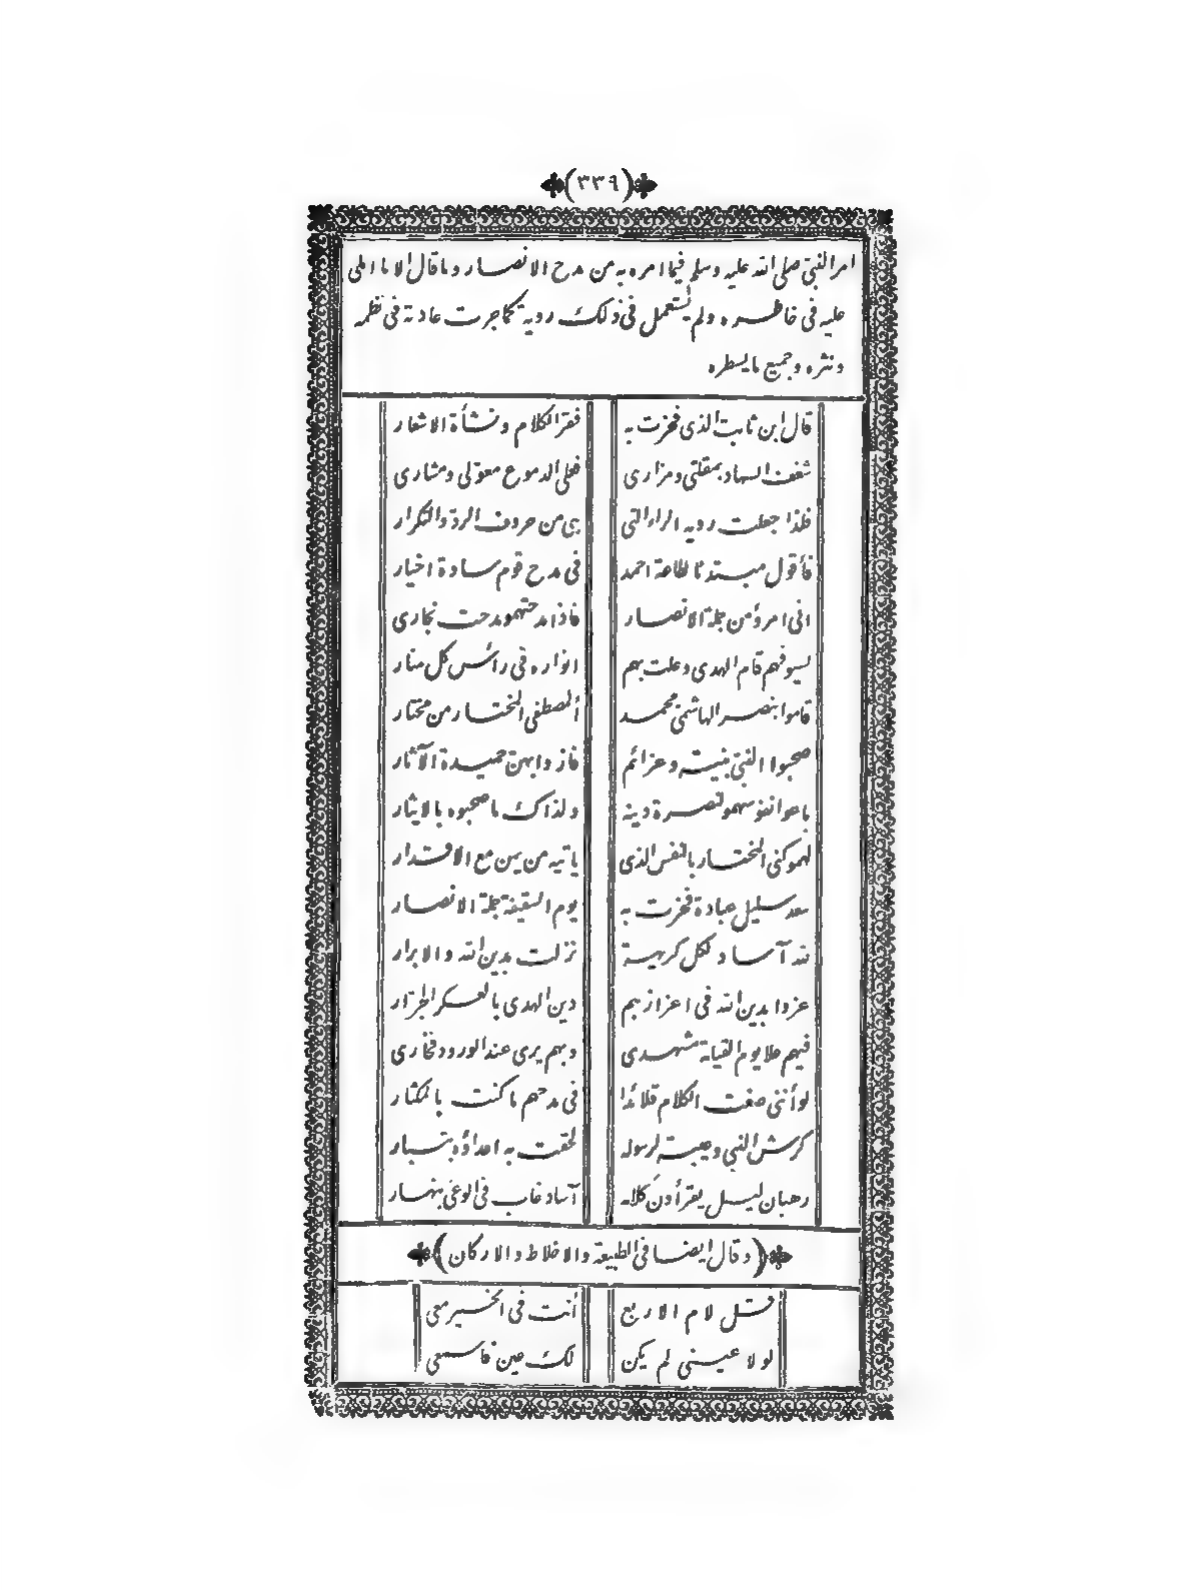 (٣٣٩)
امر النبىّ صلى الله عليه وسلم فيما امره به من مدح الانصار وما قال الا ما املى
عليه فى خاطره ولم يستعمل فى ذلك روية كما جرت عادته فى نظمه
ونثره وجميع ما يسطره
قال ابن ثابت الذى فخرت به فقر الكلام ونشأة الاشعار
شغف السهاد بمقلتى ومزارى فعلى الدموع معوّلى ومشارى
فلذا جعلت رويه الراء التى هى من حروف الردّ والتكرار
فأقول مبتدئا لطاعة احمد فى مدح قوم سادة اخيار
انى امرؤ من جملة الانصار فاذا مدحتهمو مدحت نجارى
لسيوفهم قام الهدى وعلت بهم انواره فى رأس كل منار
قاموا بنصر الهاشمىّ محمد ألمصطفى المختار من مختار
صحبوا النبىّ بنية وعزائم فازوا بهنّ حميدة الآثار
باعوا نفوسهمو لنصرة دينه ولذاك ما صحبوه بالايثار
لهمو كنى المختار بالنفس الذى ياتيه من يمن مع الاقدار
سعد سليل عبادة فخرت به يوم السقيفة جملة الانصار
لله آساد لكل كريهة نزلت بدين الله والابرار
عزوا بدين الله فى اعزازهم دين الهدى بالعسكر الجرّار
فيهم علا يوم القيامة مشهدى وبهم يرى عند الورود فخارى
لو أننى صغت الكلام قلائدا فى مدحهم ما كنت بالمكثار
كرش النبى وعيبة لرسوله لحقت به اعداؤه بتبار
رهبان ليل يقرأون كلامه آساد غاب فى الوغى بنهار
(وقال ايضا فى الطبيعة والاخلاط والاركان)
قل لام الاربع أنت فى الخسير معى
لولا عينى لم يكن لك عين فاسمعى